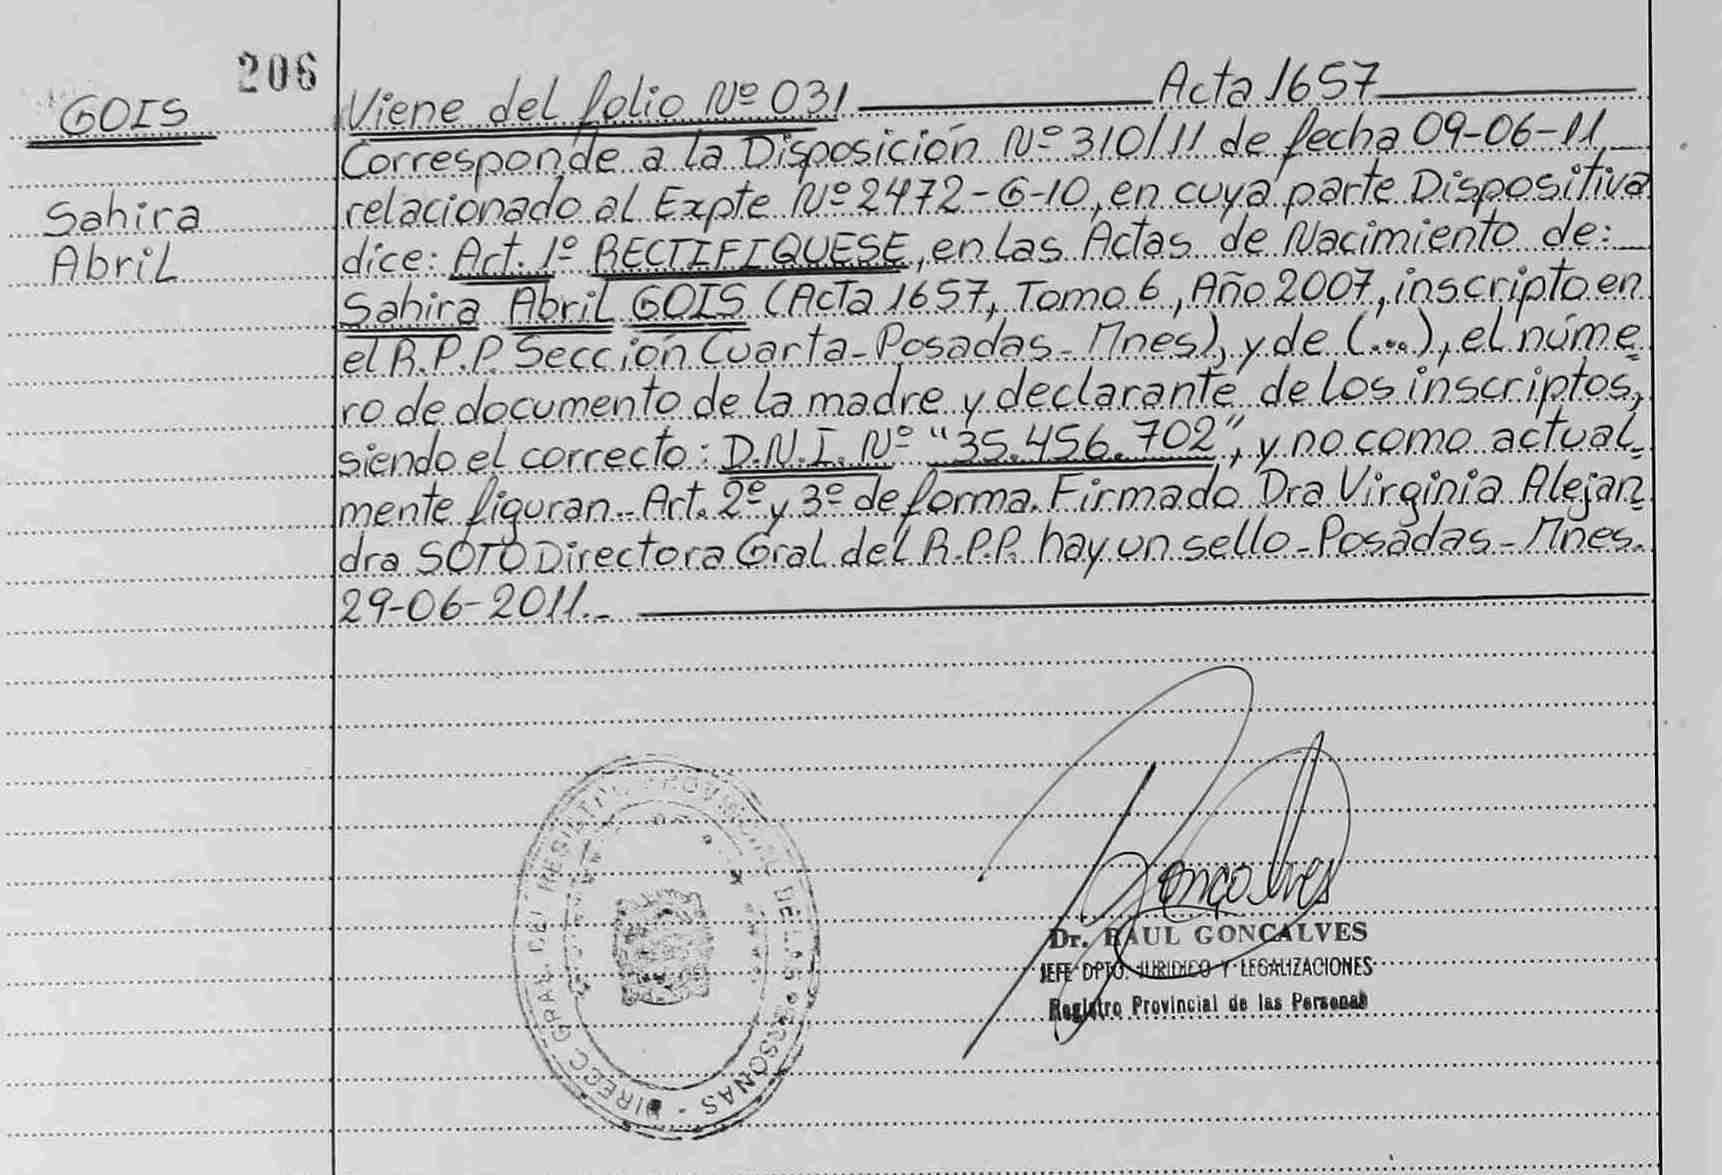 206
GOIS
Sahira
Abril
Viene del folio Nº 031 Acta 1657
Corresponde a la Disposición Nº 310/11 de fecha 09-06-11,
relacionado al Expte Nº 2472-G-10, en cuya parte Dispositiva
dice: Art. 1º RECTIFIQUESE, en las Actas de Nacimiento de:
Sahira Abril GOIS (Acta 1657, Tomo 6, Año 2007, inscripto en
el R.P.P. Sección Cuarta-Posadas-Mnes), y de (...), el núme
ro de documento de la madre y declarante de los inscriptos,
siendo el correcto: D.N.I. Nº "35.456.702", y no como actual
mente figuran.- Art. 2º y 3º de forma. Firmado Dra Virginia Alejan
dra SOTO Directora Gral del R.P.P. hay un sello-Posadas-Mnes.
29-06-2011.-
DIRECC. GRAL. DEL REGISTRO PROVINCIAL DE LAS PERSONAS
Gonçalves
Dr. RAUL GONCALVES
JEFE DPTO. JURIDICO Y LEGALIZACIONES
Registro Provincial de las Personas